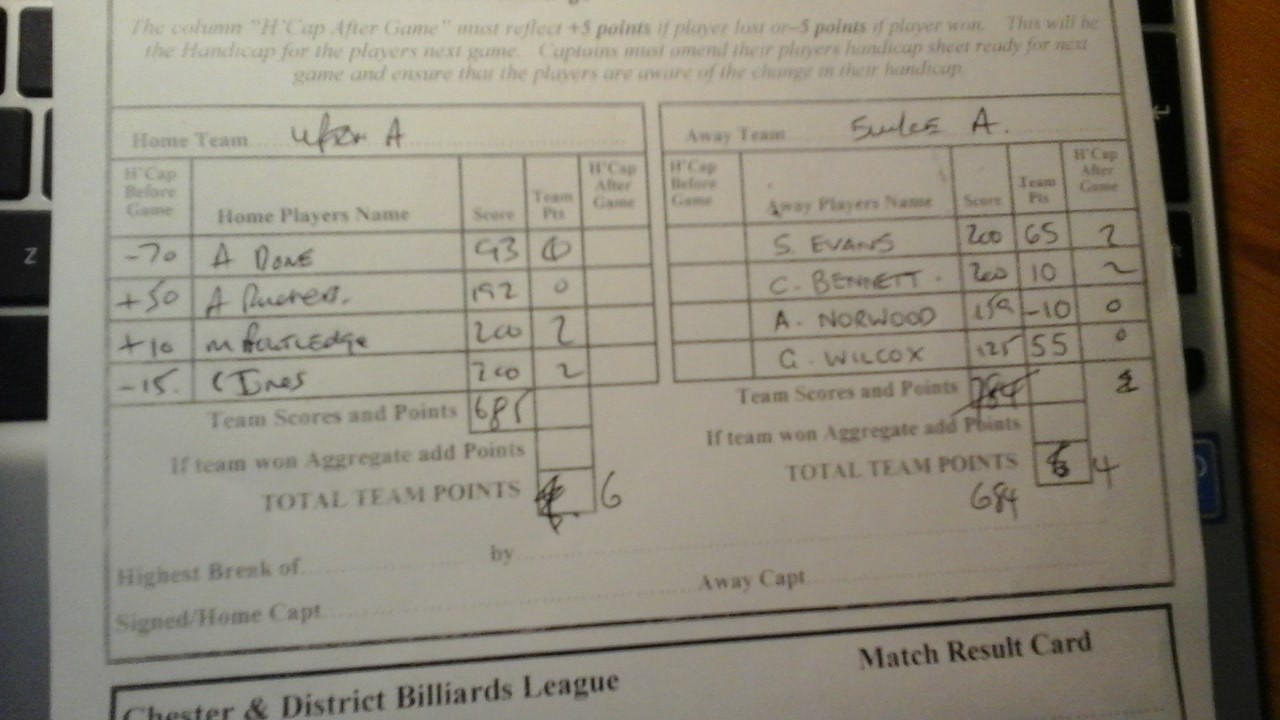 The column "H'Cap After Game" must reflect +5 points if player lost or –5 points if player won. This will be
the Handicap for the players next game. Captains must amend their players handicap sheet ready for next
game and ensure that the players are aware of the change in their handicap.
Home Team Upton A
H'Cap Before Game Home Players Name Score Team Pts H'Cap After Game
-70 A DONE 93 0
+50 A 192 0
+10 M ROUTLEDGE 200 2
-15. C JONES 200 2
Team Scores and Points 685
If team won Aggregate add Points
TOTAL TEAM POINTS 6
Away Team A.
H'Cap Before Game Away Players Name Score Team Pts H'Cap After Game
S. EVANS 200 65 2
C. BENNETT. 200 10 2
A. NORWOOD 159 -10 0
G. WILCOX 125 55 0
Team Scores and Points
If team won Aggregate add Points
TOTAL TEAM POINTS 4
684
Highest Break of by
Signed/Home Capt Away Capt
Match Result Card
Chester & District Billiards League